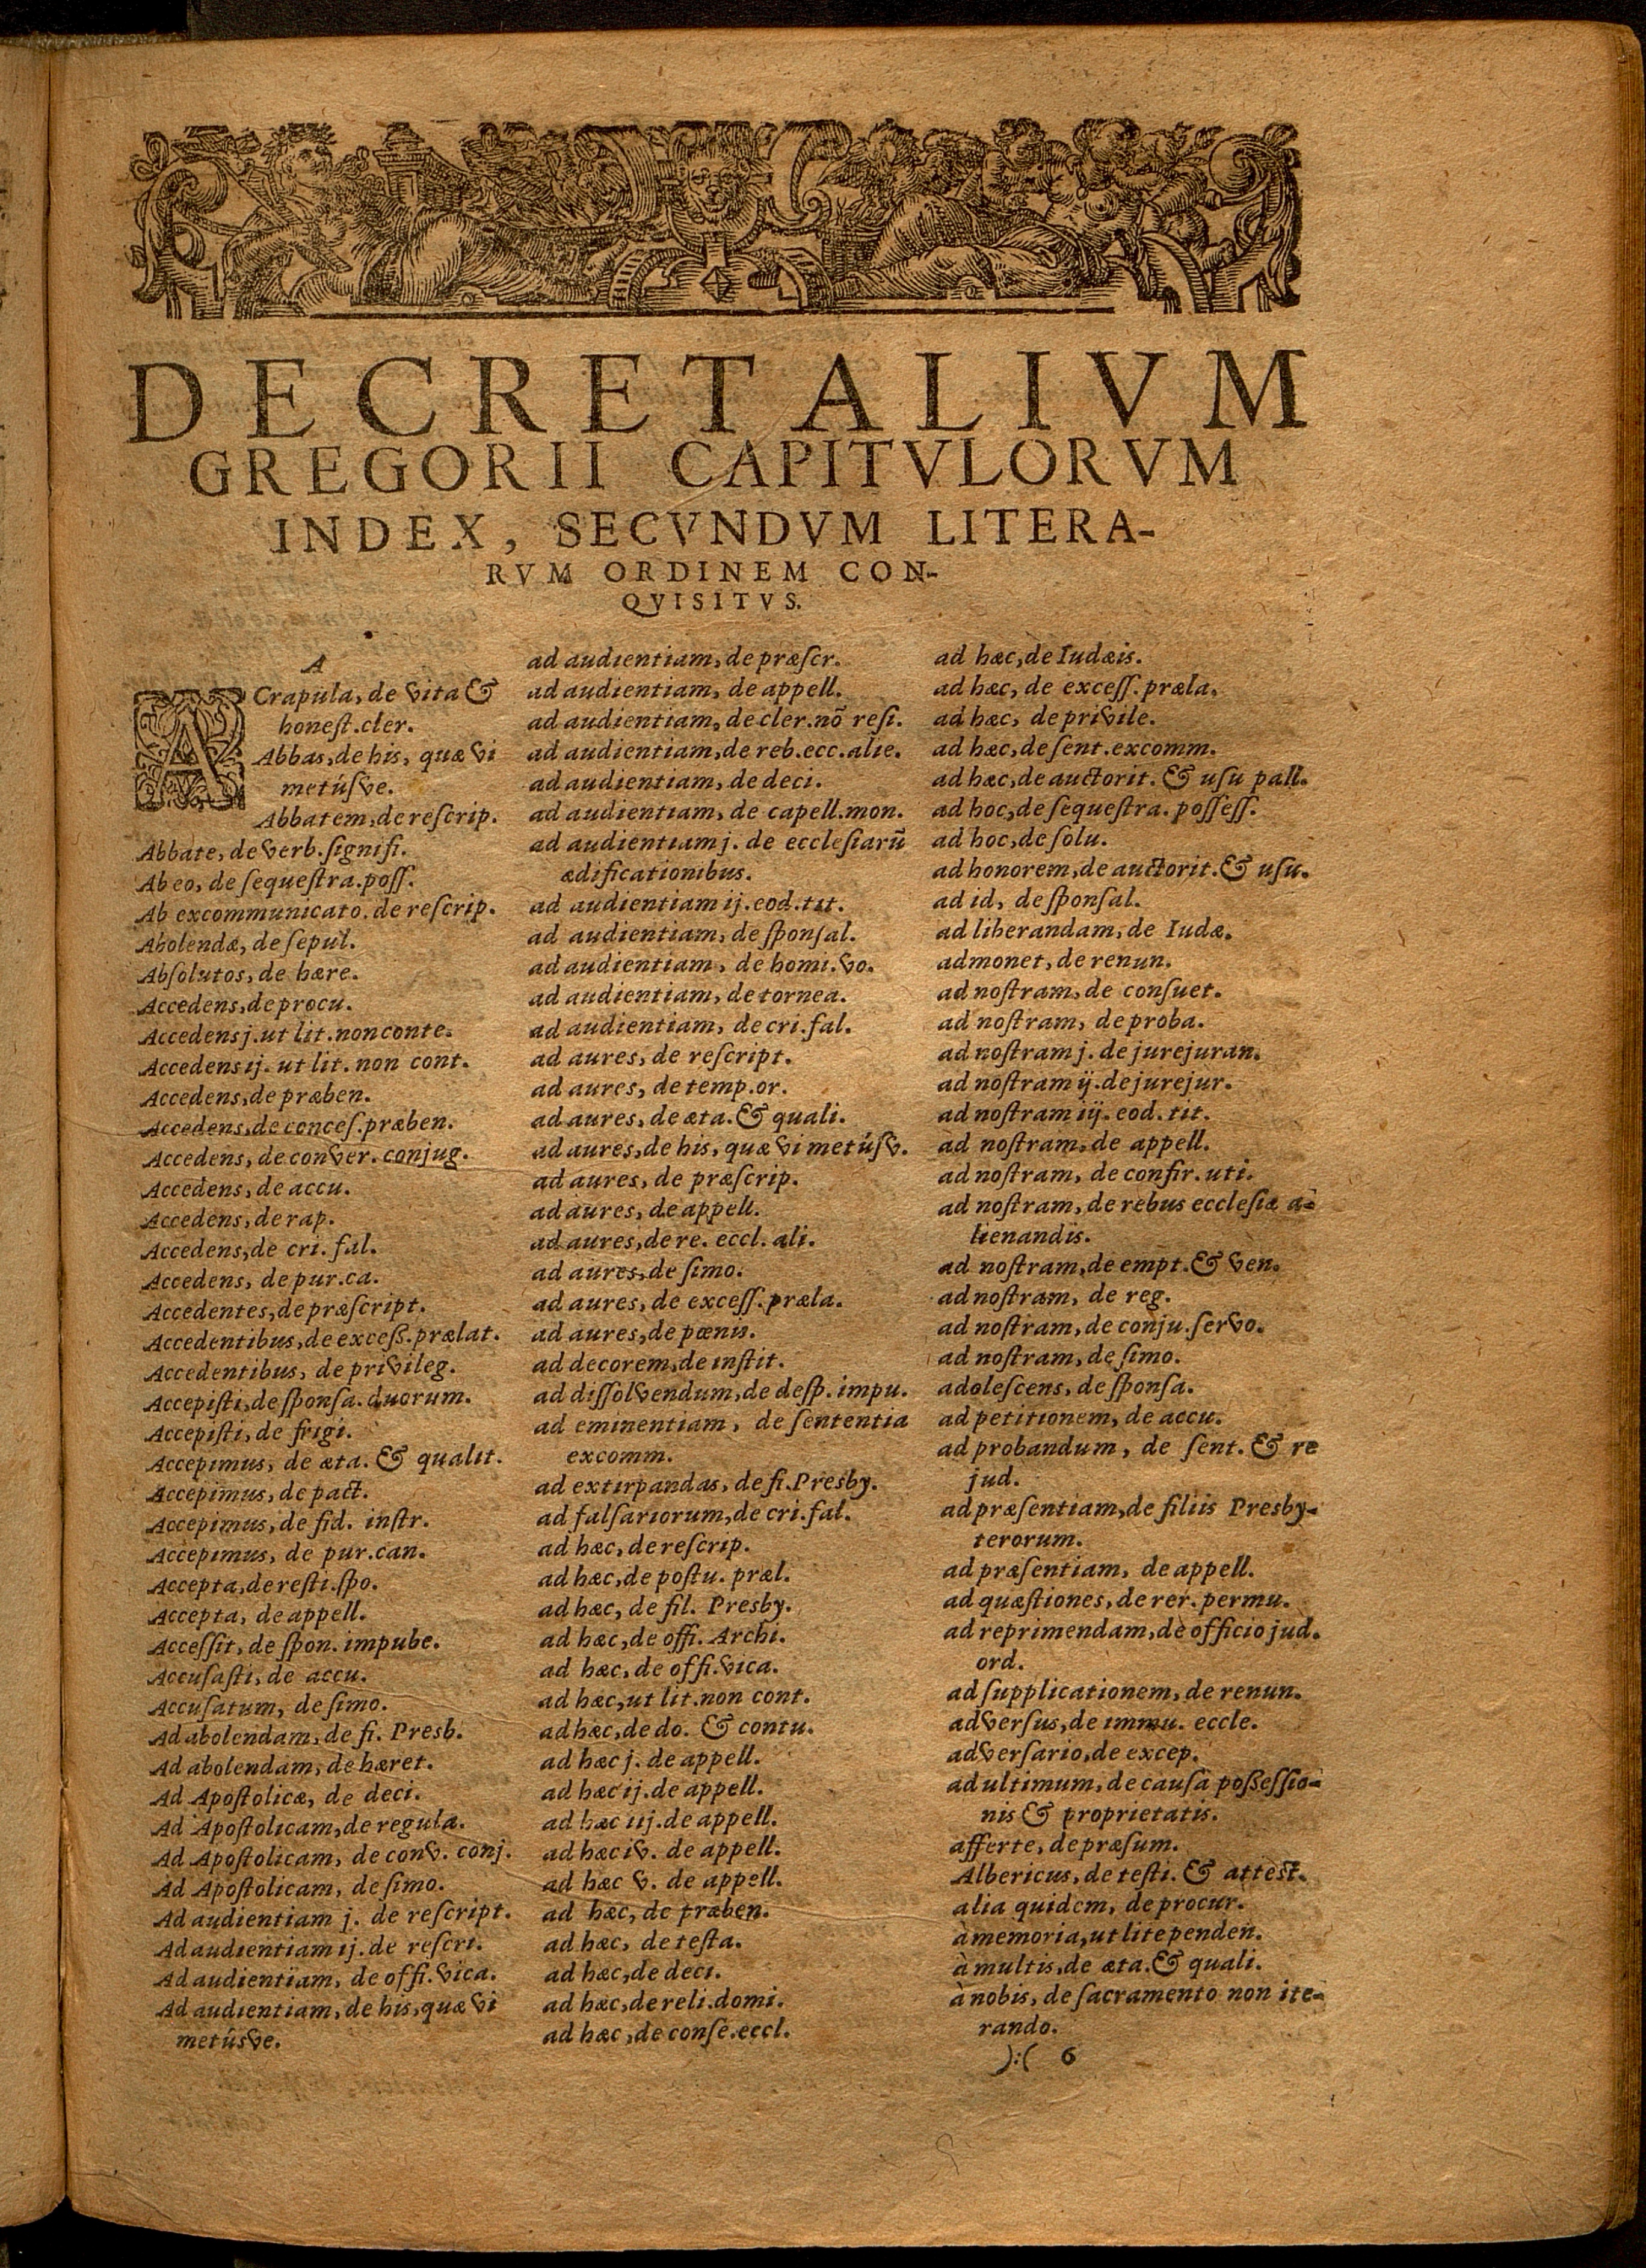 DECRETALIVM
GREGORII CAPITVLORVM
INDEX, SECVNDVM LITERA-
RVM ORDINEM CON-
QVISITVS.
A
A Crapula, de vita &
honeſt.cler.
Abbas, de his, quæ vi
metúſve.
Abbatem, de reſcrip.
Abbate, de verb. ſignifi.
Ab eo, de ſequeſtra. poſſ.
Ab excommunicato. de reſcrip.
Abolendæ, de ſepul.
Abſolutos, de hære.
Accedens, de procu.
Accedens j. ut lit. non conte.
Accedens ij. ut lit. non cont.
Accedens, de præben.
Accedens, de conceſ. præben.
Accedens, de conver. conjug.
Accedens, de accu.
Accedens, de rap.
Accedens, de cri. fal.
Accedens, de pur. ca.
Accedentes, de præſcript.
Accedentibus, de exceß. prælat.
Accedentibus, de privileg.
Accepiſti, de ſponſa. duorum.
Accepiſti, de frigi.
Accepimus, de æta. & qualit.
Accepimus, de pact.
Accepimus, de fid. inſtr.
Accepimus, de pur. can.
Accepta, de reſti. ſpo.
Accepta, de appell.
Acceſſit, de ſpon. impube.
Accuſaſti, de accu.
Accuſatum, de ſimo.
Ad abolendam, de fi. Presb.
Ad abolendam, de hæret.
Ad Apoſtolicæ, de deci.
Ad Apoſtolicam, de regula.
Ad Apoſtolicam, de conv. conj.
Ad Apoſtolicam, de ſimo.
Ad audientiam j. de reſcript.
Ad audientiam ij. de reſcri.
Ad audientiam, de offi. vica.
Ad audientiam, de his, quæ vi
metúsve.
ad audientiam, de præſcr.
ad audientiam, de appell.
ad audientiam, de cler. nõ reſi.
ad audientiam, de reb. ecc. alie.
ad audientiam, de deci.
ad audientiam, de capell. mon.
ad audientiam j. de eccleſiarũ
ædificationibus.
ad audientiam ij. eod. tit.
ad audientiam, de ſponſal.
ad audientiam, de homi. vo.
ad audientiam, de tornea.
ad audientiam, de cri. fal.
ad aures, de reſcript.
ad aures, de temp. or.
ad aures, de æta. & quali.
ad aures, de his, quæ vi metúſv.
ad aures, de præſcrip.
ad aures, de appell.
ad aures, de re. eccl. ali.
ad aures, de ſimo.
ad aures, de exceſſ. præla.
ad aures, de pœnis.
ad decorem, de inſtit.
ad diſſolvendum, de deſp. impu.
ad eminentiam, de ſententia
excomm.
ad extirpandas, de fi. Presby.
ad falſariorum, de cri. fal.
ad hæc, de reſcrip.
ad hæc, de poſtu. præl.
ad hæc, de fil. Presby.
ad hæc, de offi. Archi.
ad hæc, de offi. vica.
ad hæc, ut lit. non cont.
ad hæc, de do. & contu.
ad hæc j. de appell.
ad hæc ij. de appell.
ad hæc iij. de appell.
ad hæc iv. de appell.
ad hæc v. de appell.
ad hæc, de præben.
ad hæc, de teſta.
ad hæc, de deci.
ad hæc, de reli. domi.
ad hæc, de conſe. eccl.
ad hæc, de Iudæis.
ad hæc, de exceſſ. præla.
ad hæc, de privile.
ad hæc, de ſent. excomm.
ad hæc, de auctorit. & uſu pall.
ad hoc, de ſequeſtra. poſſeſſ.
ad hoc, de ſolu.
ad honorem, de auctorit. & uſu.
ad id, de ſponſal.
ad liberandam, de Iudæ.
admonet, de renun.
ad noſtram, de conſuet.
ad noſtram, de proba.
ad noſtram j. de jurejuran.
ad noſtram ij. de jurejur.
ad noſtram iij. eod. tit.
ad noſtram, de appell.
ad noſtram, de confir. uti.
ad noſtram, de rebus eccleſiæ a-
lienandis.
ad noſtram, de empt. & ven.
ad noſtram, de reg.
ad noſtram, de conju. ſervo.
ad noſtram, de ſimo.
adoleſcens, de ſponſa.
ad petitionem, de accu.
ad probandum, de ſent. & re
jud.
ad præſentiam, de filiis Presby-
terorum.
ad præſentiam, de appell.
ad quæſtiones, de rer. permu.
ad reprimendam, de officio jud.
ord.
ad ſupplicationem, de renun.
adverſus, de immu. eccle.
adverſario, de excep.
ad ultimum, de cauſa poßeſſio-
nis & proprietatis.
afferte, de præſum.
Albericus, de teſti. & atteſt.
alia quidem, de procur.
à memoria, ut lite penden.
à multis, de æta. & quali.
à nobis, de ſacramento non ite-
rando.
):( 6